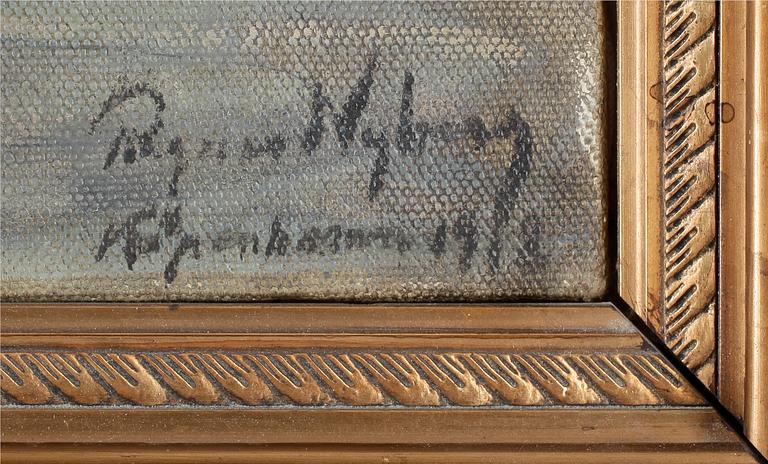 Ragnar Nyberg
Köpenhamn 1918